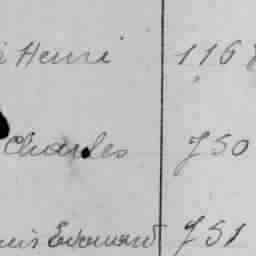 Henri 116
Charles 750
Edouard 751